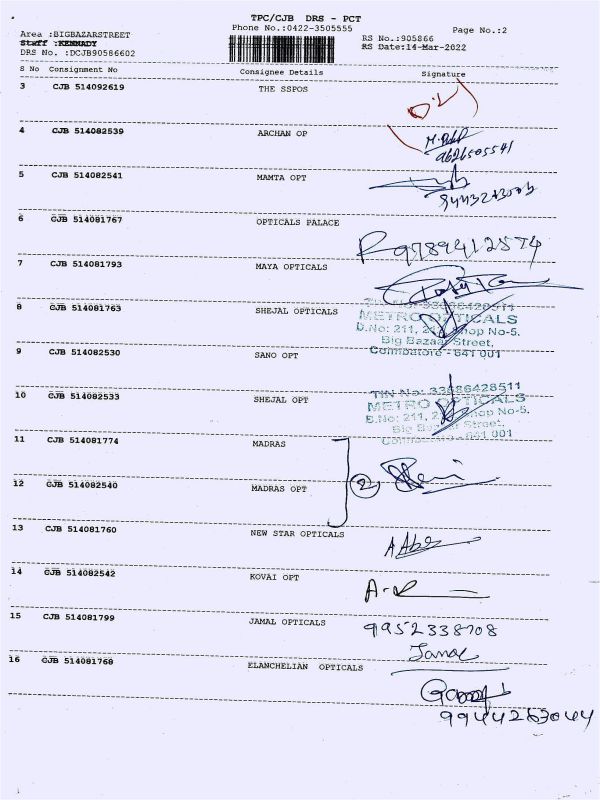 TPC/CJB DRS - PCT
Phone No.:0422-3505555
Page No.:2
Area :BIGBAZARSTREET
RS No.:905866
Staff :KENNADY
RS Date:14-Mar-2022
DRS No. :DCJB90586602
S No Consignment No Consignee Details Signature
3 CJB 514092619 THE SSPOS
4 CJB 514082539 ARCHAN OP
9626505541
5 CJB 514082541 MAMTA OPT
6 CJB 514081767 OPTICALS PALACE
9789412574
7 CJB 514081793 MAYA OPTICALS
8 CJB 514081763 SHEJAL OPTICALS
TIN No: 33686428511
METRO OPTICALS
D.No: 211, 21, Shop No-5.
Big Bazaar Street,
Coimbatore - 641 001
9 CJB 514082530 SANO OPT
10 CJB 514082533 SHEJAL OPT
TIN No: 33686428511
METRO OPTICALS
D.No: 211, Shop No-5.
Big Bazaar Street,
Coimbatore - 641 001
11 CJB 514081774 MADRAS
2
12 CJB 514082540 MADRAS OPT
13 CJB 514081760 NEW STAR OPTICALS
14 CJB 514082542 KOVAI OPT
15 CJB 514081799 JAMAL OPTICALS
9952338708
Jamal
16 CJB 514081768 ELANCHELIAN OPTICALS
9944263044